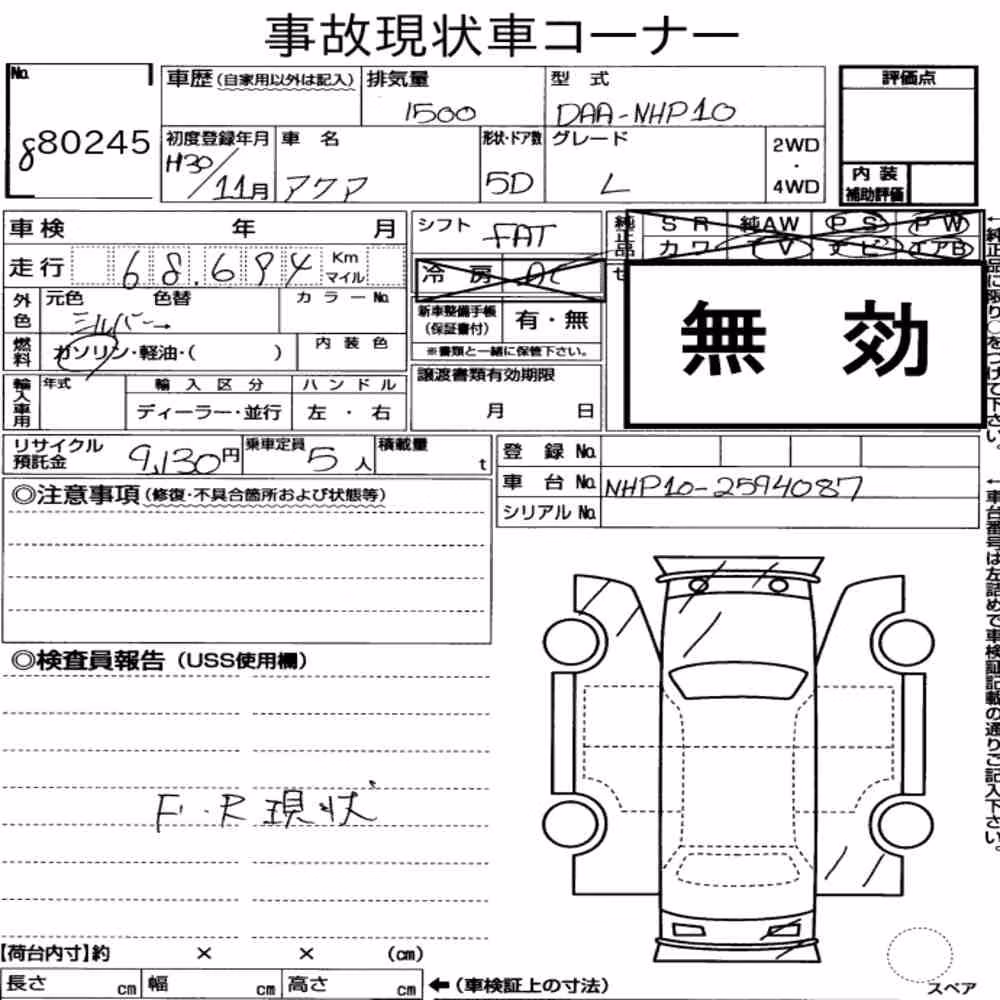 事故現状車コーナー
No.
880245
車歴(自家用以外は記入)
排気量
1500
型式
DAA-NHP10
評価点
初度登録年月
H30/11月
車名
アクア
形状・ドア数
5D
グレード
L
2WD
・
4WD
内装
補助評価
車検 年 月
シフト
FAT
純正品
SR 純AW PS PW
カワ TV ナビ エアB
走行 68,694 Km
マイル
冷房 AC
無効
外色
元色 色替
シルバー
カラーNo.
新車整備手帳
(保証書付)
有・無
※書類と一緒に保管下さい。
燃料
ガソリン・軽油・( )
内装色
輸入車用
年式
輸入区分
ディーラー・並行
ハンドル
左・右
譲渡書類有効期限
月 日
←純正品に限り○をつけて下さい。
リサイクル
預託金
9,130円
乗車定員
5人
積載量
t
登録No.
車台No. NHP10-2594087
シリアルNo.
←車台番号は左詰めで車検証記載の通りご記入下さい。
◎注意事項(修復・不具合箇所および状態等)
◎検査員報告(USS使用欄)
F・R現状
【荷台内寸】約 × × (cm)
長さ cm 幅 cm 高さ cm ←(車検証上の寸法)
スペア